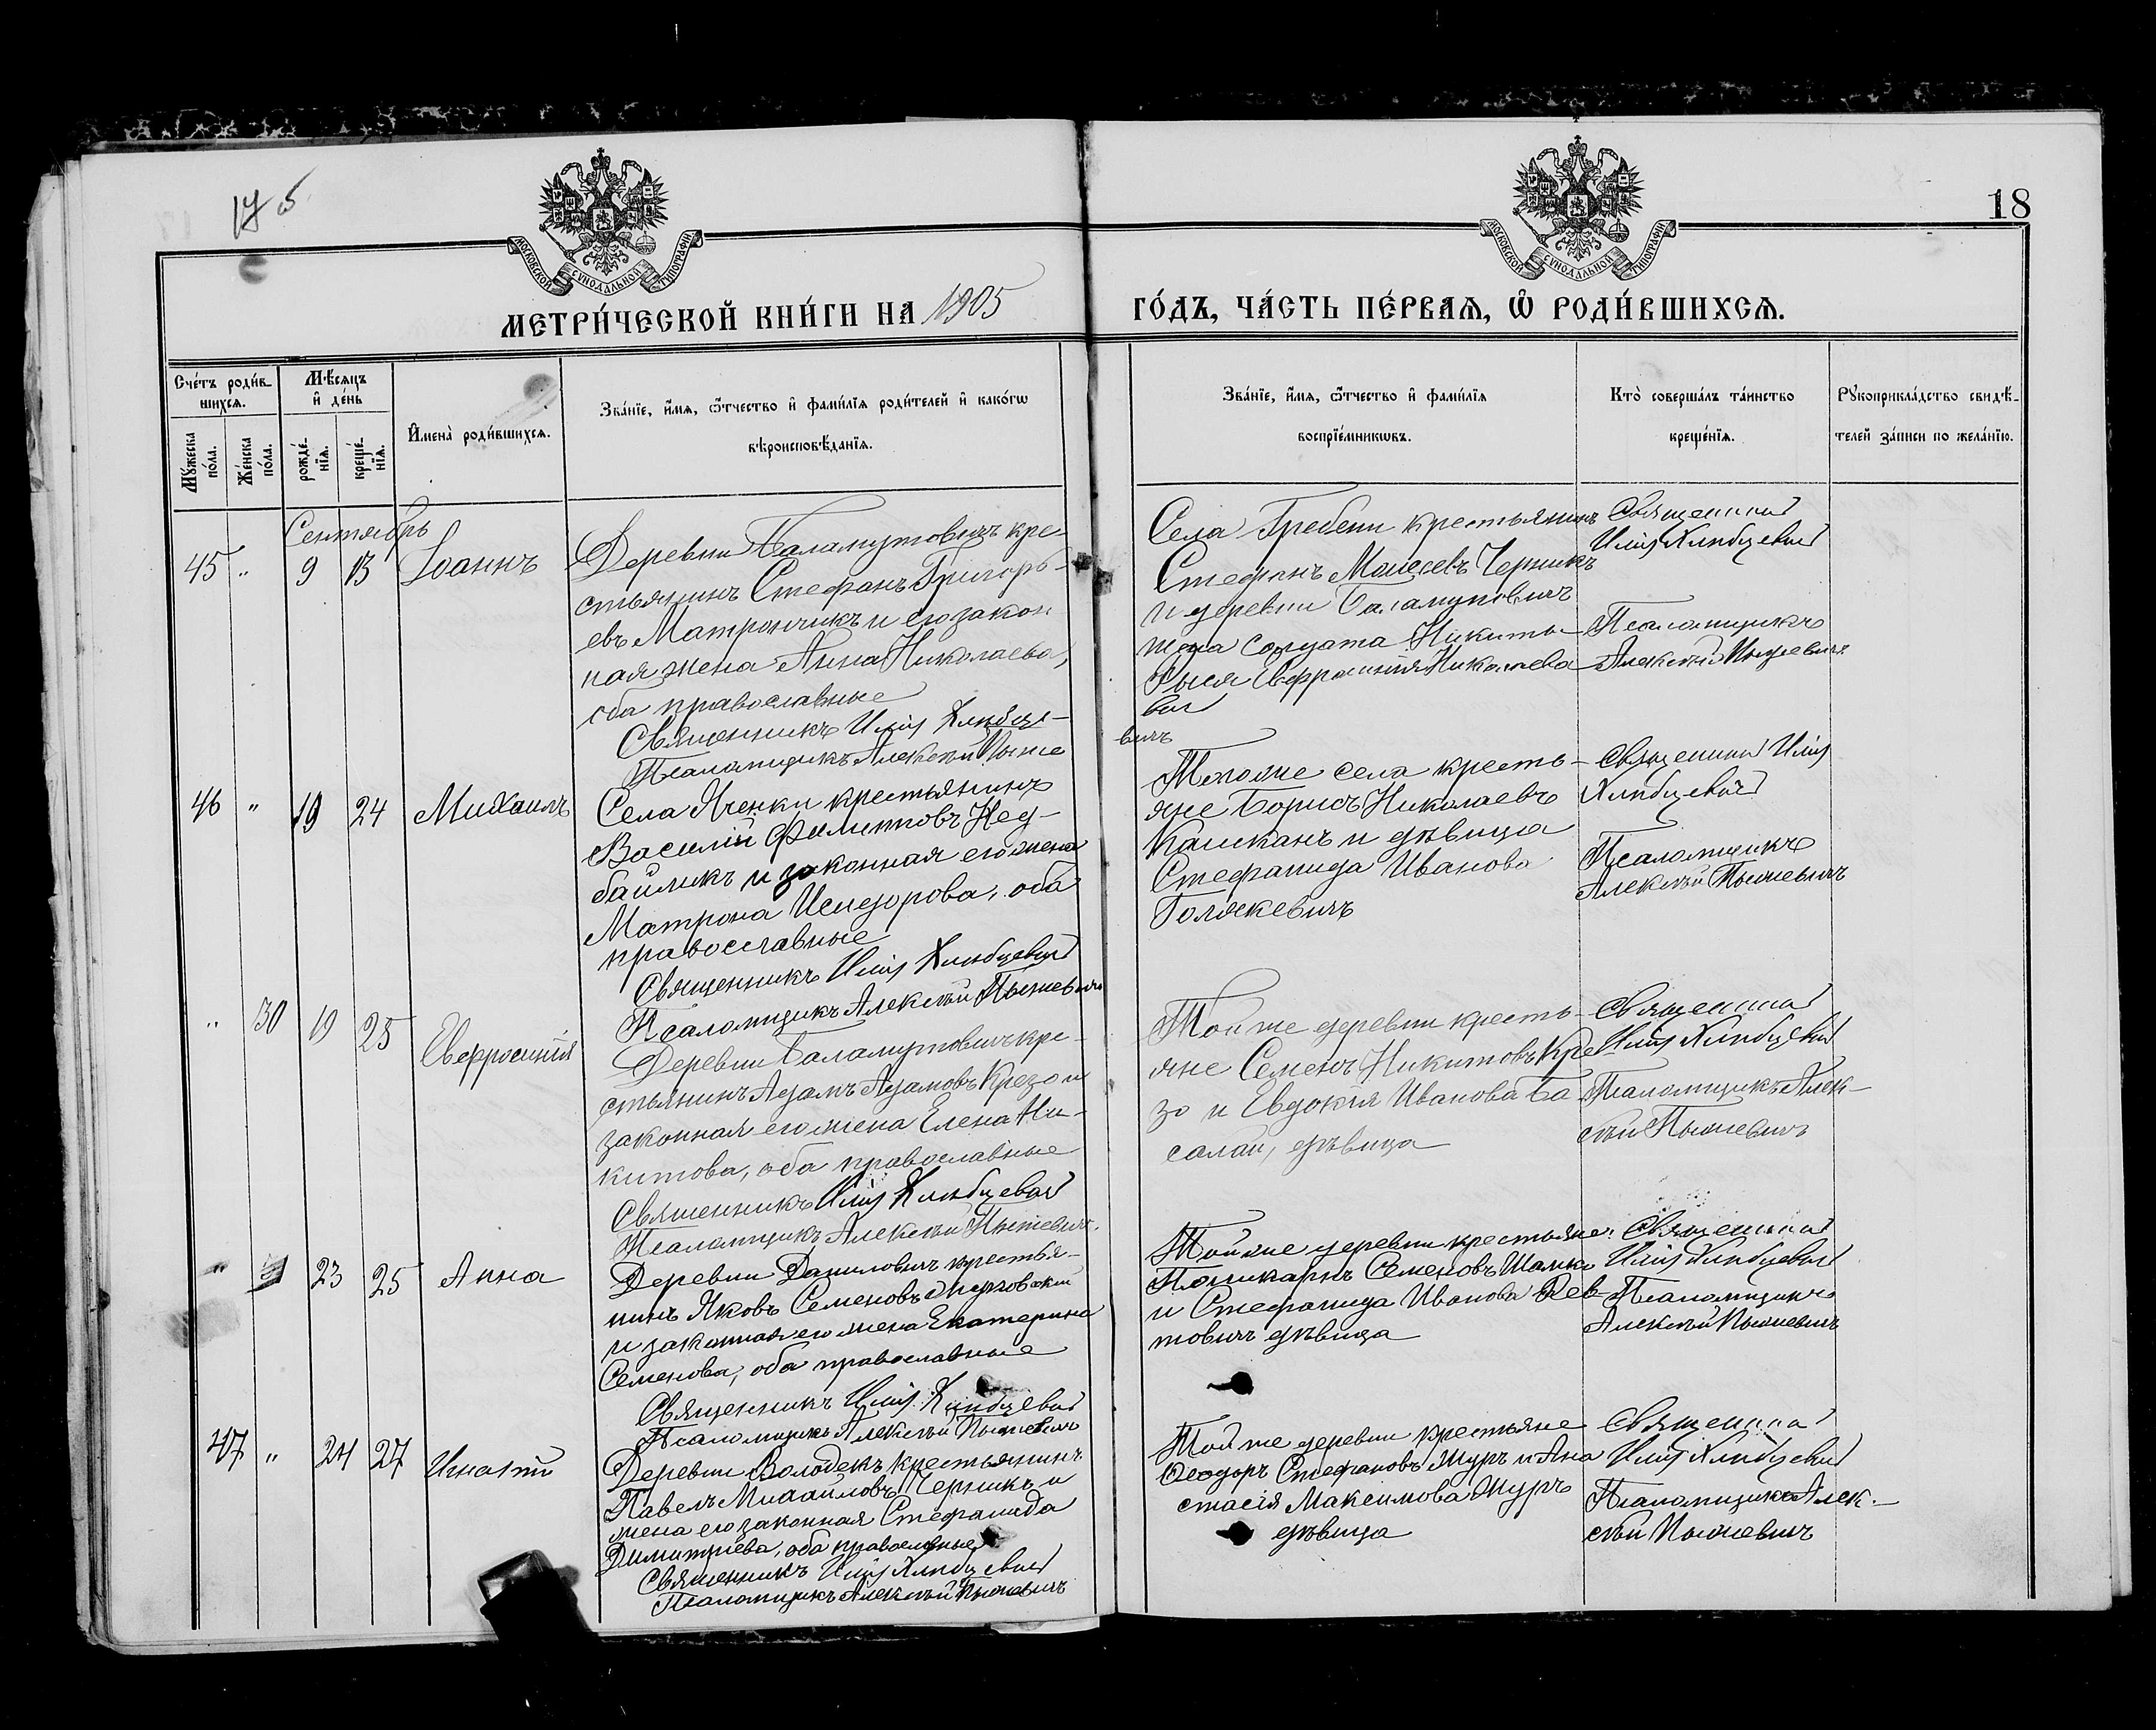 175
18
МОСКОВСКОЙ СѴНОДАЛЬНОЙ ТИПОГРАФІИ
МОСКОВСКОЙ СѴНОДАЛЬНОЙ ТИПОГРАФІИ
МЕТРИ́ЧЕСКОЙ КНИ́ГИ НА 1905
ГО́ДЪ, ЧА́СТЬ ПЕ́РВАѦ, Ѡ҆ РОДИ́ВШИХСѦ.
Сче́тъ роди́в-
шихсѧ.
Мѣ́сѧцъ
и҆ де́нь
Мꙋ́жеска
по́ла.
Же́нска
по́ла.
рожде́-
нїѧ.
креще́-
нїѧ.
И҆мена̀ роди́вшихсѧ.
Зва́нїе, и҆́мѧ, ѻ҆́тчество и҆ фами́лїѧ роди́телей и҆ како́гѡ
вѣроисповѣ́данїѧ.
Зва́нїе, и҆́мѧ, ѻ҆́тчество и҆ фами́лїѧ
воспрїе́мникѡвъ.
Кто̀ соверша́лъ та́инство
креще́нїѧ.
Рꙋкоприкла́дство свидѣ́-
телей за́писи по жела́нїю.
Сентябрь
45 " 9 13 Іоаннъ
Деревни Баламутовичъ кре-
стьянинъ Стефанъ Григорь-
евъ Матрончикъ и его закон
ная жена Анна Николаева,
оба православные
Священникъ Илія Хлѣбце-
вичъ
Псаломщикъ Алексѣй Пыше
Села Гребени крестьянинъ
Стефанъ Моисеевъ Черникъ
и деревни Баламутовичъ
жена солдата Никиты
Евфросинія Николаева
Священникъ
Илія Хлѣбцевичъ
Псаломщикъ
Алексѣй Пышевичъ
46 " 19 24 Михаилъ
Села Яченки крестьянинъ
Василій Филипповъ Нед-
байликъ и законная его жена
Матрона Исидорова, оба
православные
Священникъ Илія Хлѣбцевичъ
Псаломщикъ Алексѣй Пышевичъ
Того же села кресть-
яне Борисъ Николаевъ
и дѣвица
Стефанида Иванова
Голякевичъ
Священникъ Илія
Хлѣбцевичъ
Псаломщикъ
Алексѣй Пышевичъ
" 30 19 25 Евфросинія
Деревни Баламутовичъ кре-
стьянинъ Адамъ Адамовъ Крезо и
законная его жена Елена Ни-
китова, оба православные
Священникъ Илія Хлѣбцевичъ
Псаломщикъ Алексѣй Пышевичъ.
Той же деревни кресть-
яне Семенъ Никитовъ Кре
зо и Евдокія Иванова Ба
салай, дѣвица
Священникъ
Илія Хлѣбцевичъ
Псаломщикъ Алек-
сѣй Пышевичъ
" 23 25 Анна
Деревни Даниловичъ крестья-
нинъ Яковъ Семеновъ
и законная его жена Екатерина
Семенова, оба православные
Священникъ Илія Хлѣбцевичъ
Псаломщикъ Алексѣй Пышевичъ
Той же деревни крестьяне
Поликарпъ Семеновъ
и Стефанида Иванова Лев-
товичъ дѣвица
Священникъ
Илія Хлѣбцевичъ
Псаломщикъ
Алексѣй Пышевичъ
47 " 24 27 Игнатій
Деревни Володекъ крестьянинъ
Павелъ Михайловъ Черникъ и
жена его законная Стефанида
Димитріева, оба православные
Священникъ Илія Хлѣбцевичъ
Псаломщикъ Алексѣй Пышевичъ
Той же деревни крестьяне
Ѳеодоръ Стефановъ Журъ и Ана
стасія Максимова Журъ
дѣвица
Священникъ
Илія Хлѣбцевичъ
Псаломщикъ Алек-
сѣй Пышевичъ